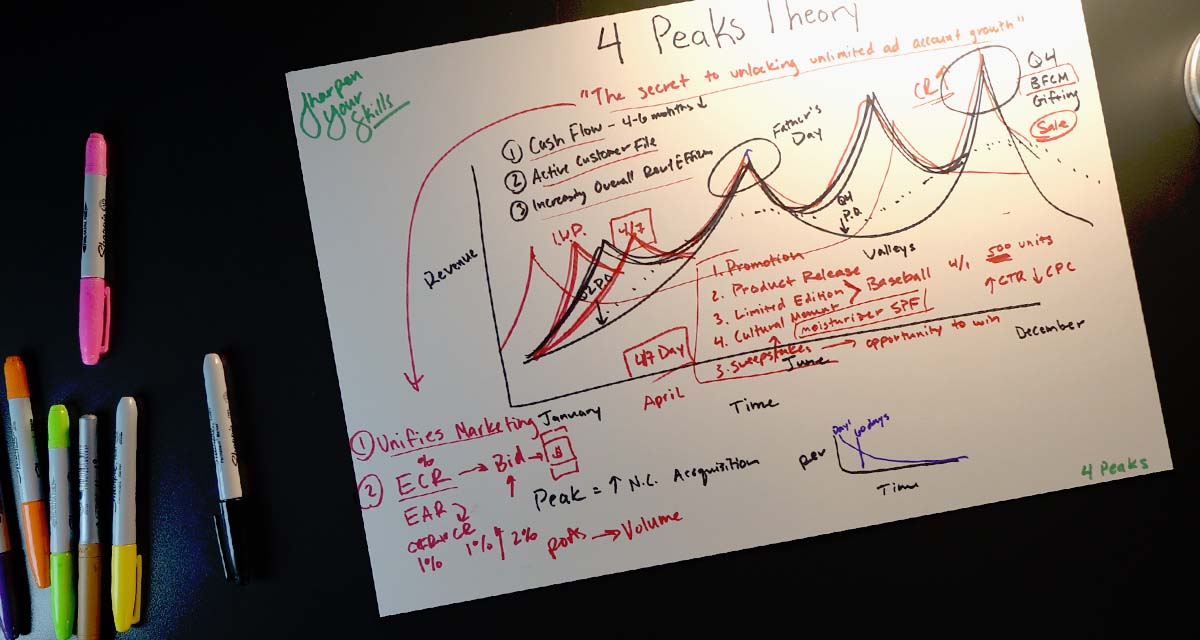 4 Peaks Theory
Sharpen
Your
Skills
"The secret to unlocking unlimited ad account growth"
① Cash Flow - 4-6 months ↓
② Active Customer File
③ Increasing Overall
Revenue
I.W.P.
4/7
Q2 P.D.
Father's
Day
CR ↑
Q4
BFCM
Gifting
Sale
Q4
P.D.
Valleys
1. Promotion
2. Product Release
3. Limited Edition > Baseball 4/1 500 units
4. Cultural Moment
moisturizer SPF
↑ CTR ↓ CPC
3. Sweepstakes → opportunity to win
4/7 Day
January
April
June
December
Time
① Unifies Marketing
② ECR % → Bid → B
EAR
CR
1%
1% 2%
posts → Volume
Peak = ↑ N.C. Accquisition
Day 1
60 days
per
Time
4 Peaks
Sharpie
Sharpie
Sharpie